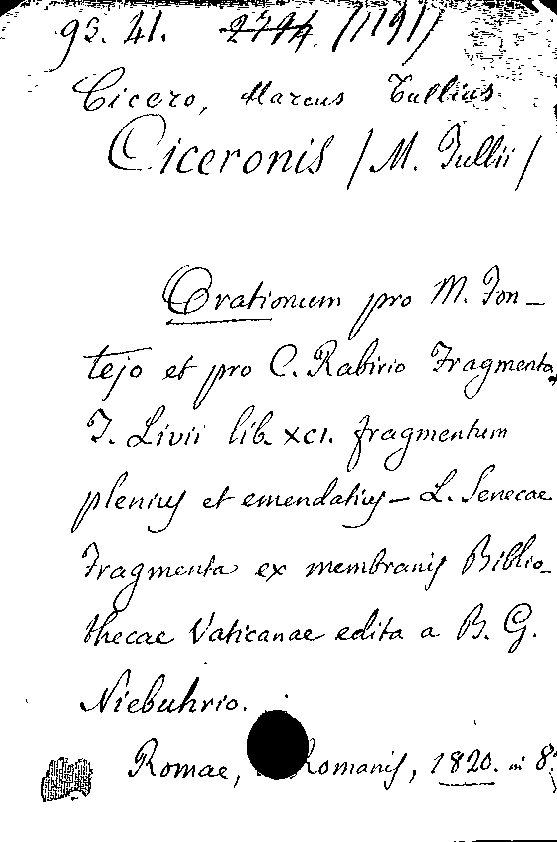 93. 41. 2794. /119/
Cicero, Marcus Tullius
Ciceronis /M. Tullii/
Orationum pro M. Fon-
tejo et pro C. Rabirio Fragmenta,
T. Livii lib. XCI. fragmentum
plenius et emendatius - L. Senecae
Fragmenta ex membranis Biblio-
thecae Vaticanae edita a B. G.
Niebuhrio.
Romae, Romanis, 1820. in 8.